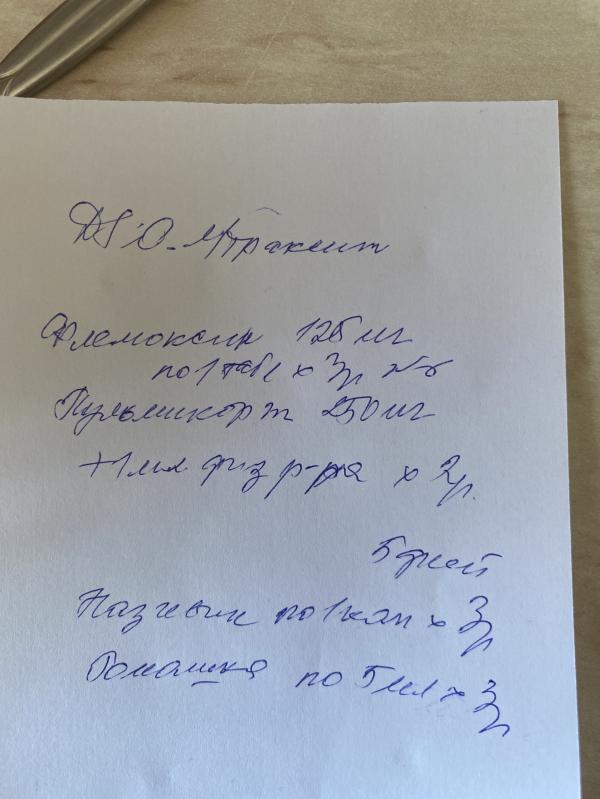 DS: О. трахеит
Флемоксин 125 мг
по 1 табл х 3 р
Пульмикорт 250 мг
+ 1 мл физ р-ра х 2 р.
5 дней
Називин по 1 кап х 3 р
Ромашка по 5 мл х 3 р